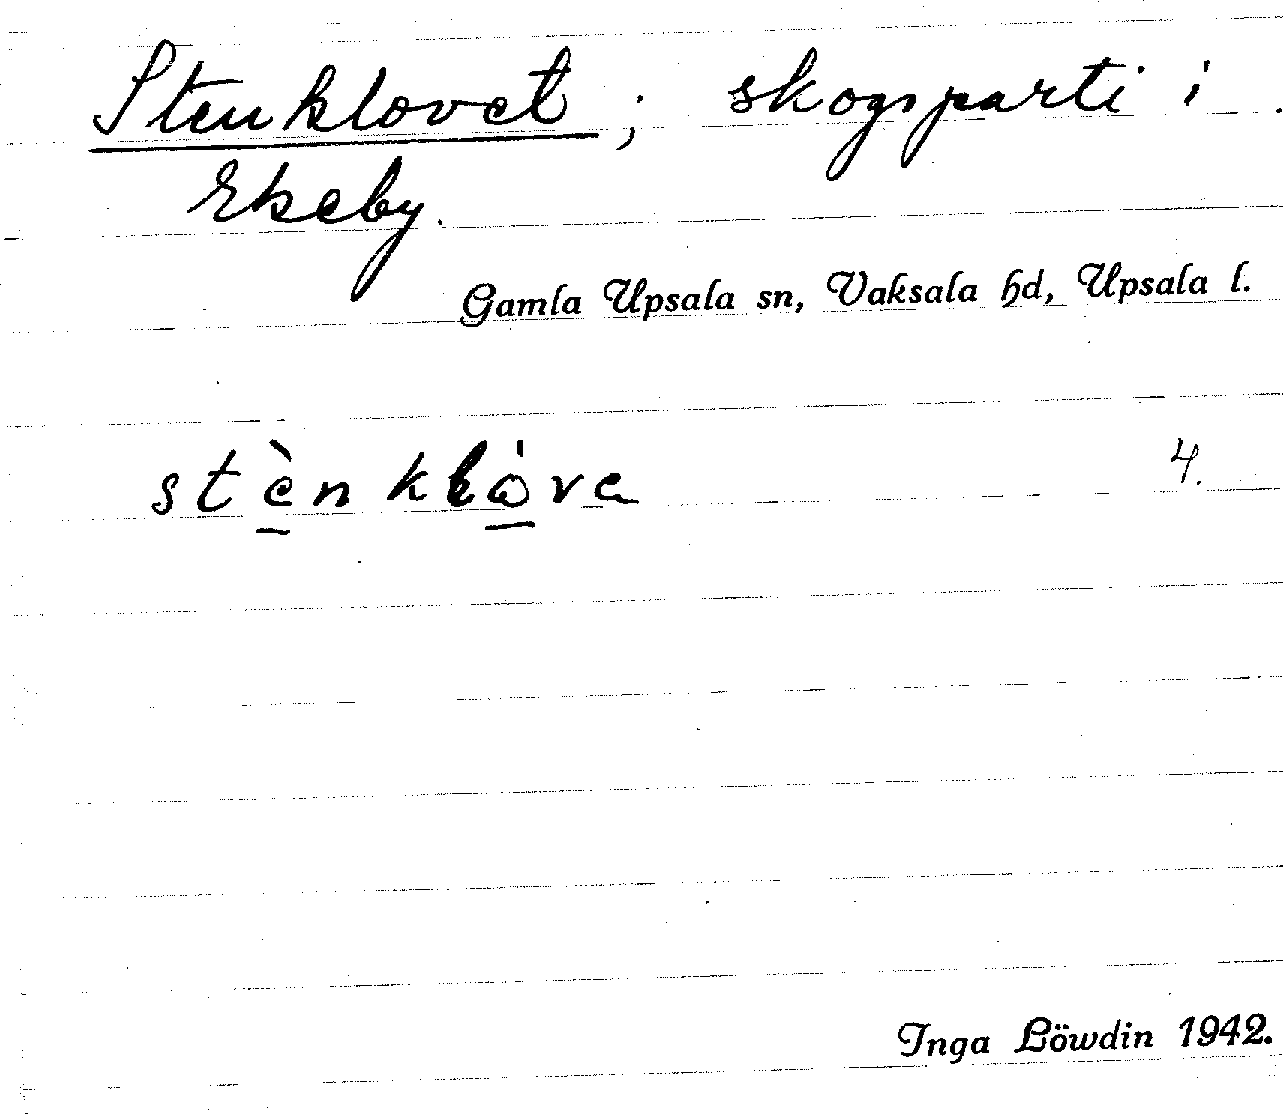 Stenklovet; skogsparti i
Ekeby.
Gamla Upsala sn, Vaksala hd, Upsala l.
stènklȯ́va 4.
Inga Löwdin 1942.